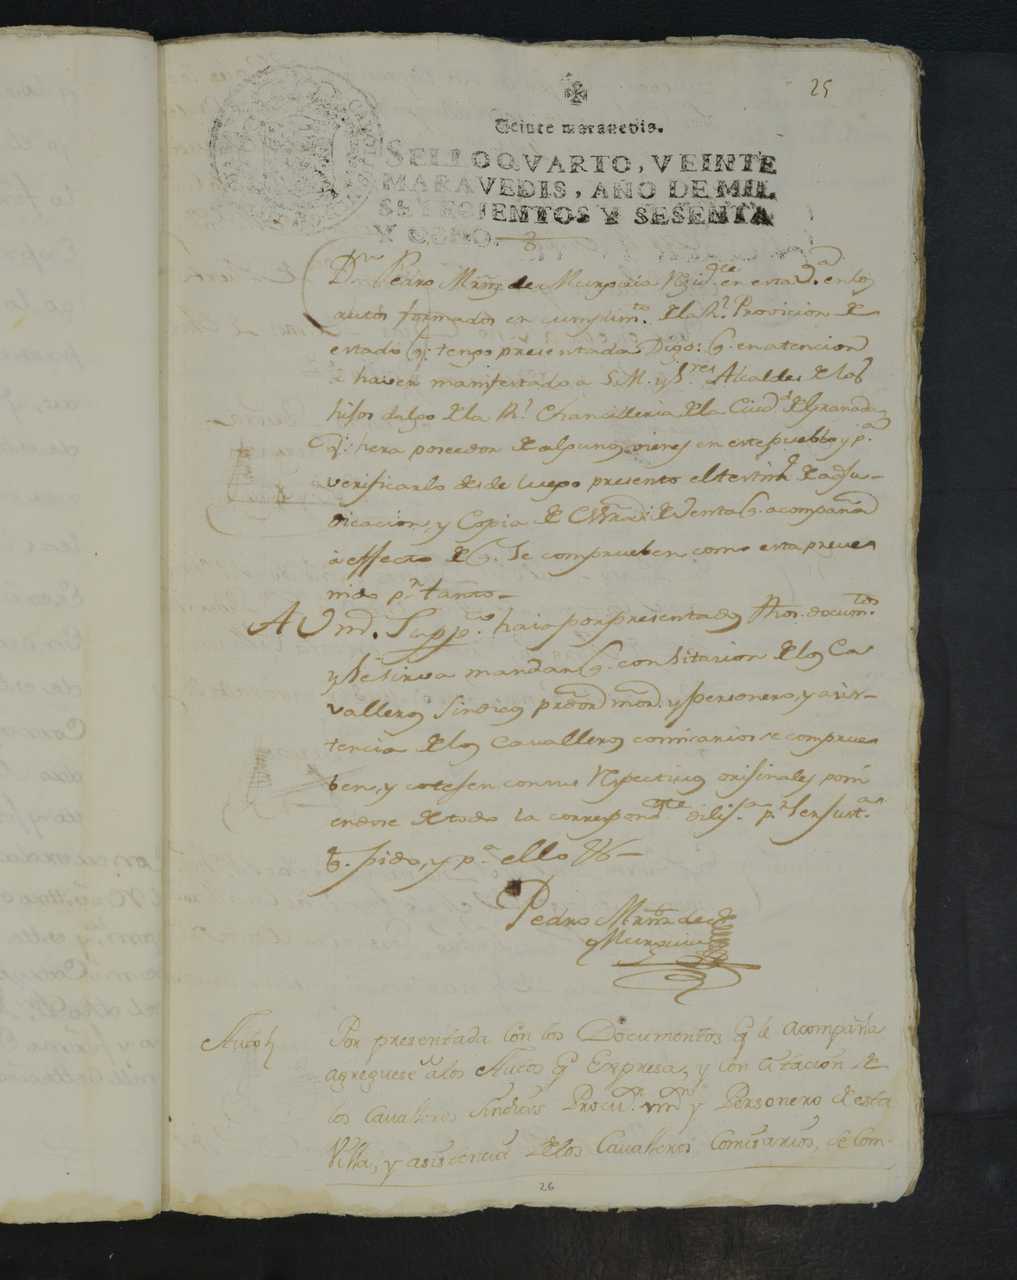 25
Veinte maravedis.
SELLO QVARTO, VEINTE
MARAVEDIS, AÑO DE MIL
SETECIENTOS Y SESENTA
Y OCHO.
Dn Pedro Mrñz de Murguia Residte en esta Va. en los
autos formados en cumplimto. de la Rl. Provicion de
estado q. tengo presentada Digo: q. en atencion
a haver manifestado a S.M. y Sres Alcaldes de los
hijos dalgo de la Rl Chancilleria de la Ciudd de Granada
q. hera poseedor de algunos vienes en este pueblo y pa
verificarlo desde luego presento el testimo de adju-
dicacion, y Copia de Escra de Venta q. acompañan
a effecto de q. se comprueben como esta preve
nido pr tanto-
A Vmd. Suppco haia por presentados dhos. documtos
y se sirva mandar q. con sitacion de los Ca
valleros Sindicos
y personero, y asis-
tencia de los Cavalleros comisarios se comprue
ben, y cotejen con sus respectivos orijinales, poni
endose de todo la correspondte dilija. pr ser justa.
q. pido, y pa ello &-
Pedro Mrñz de
Murguia
Auto
Por presentada con los Documentos q le acompaña
agreguese a los Autos q Expresa, y con citacion de
los Cavalleros Sindicos Procur y Personero de esta
Villa, y asistencia de los Cavalleros Comisarios, se Com-
26